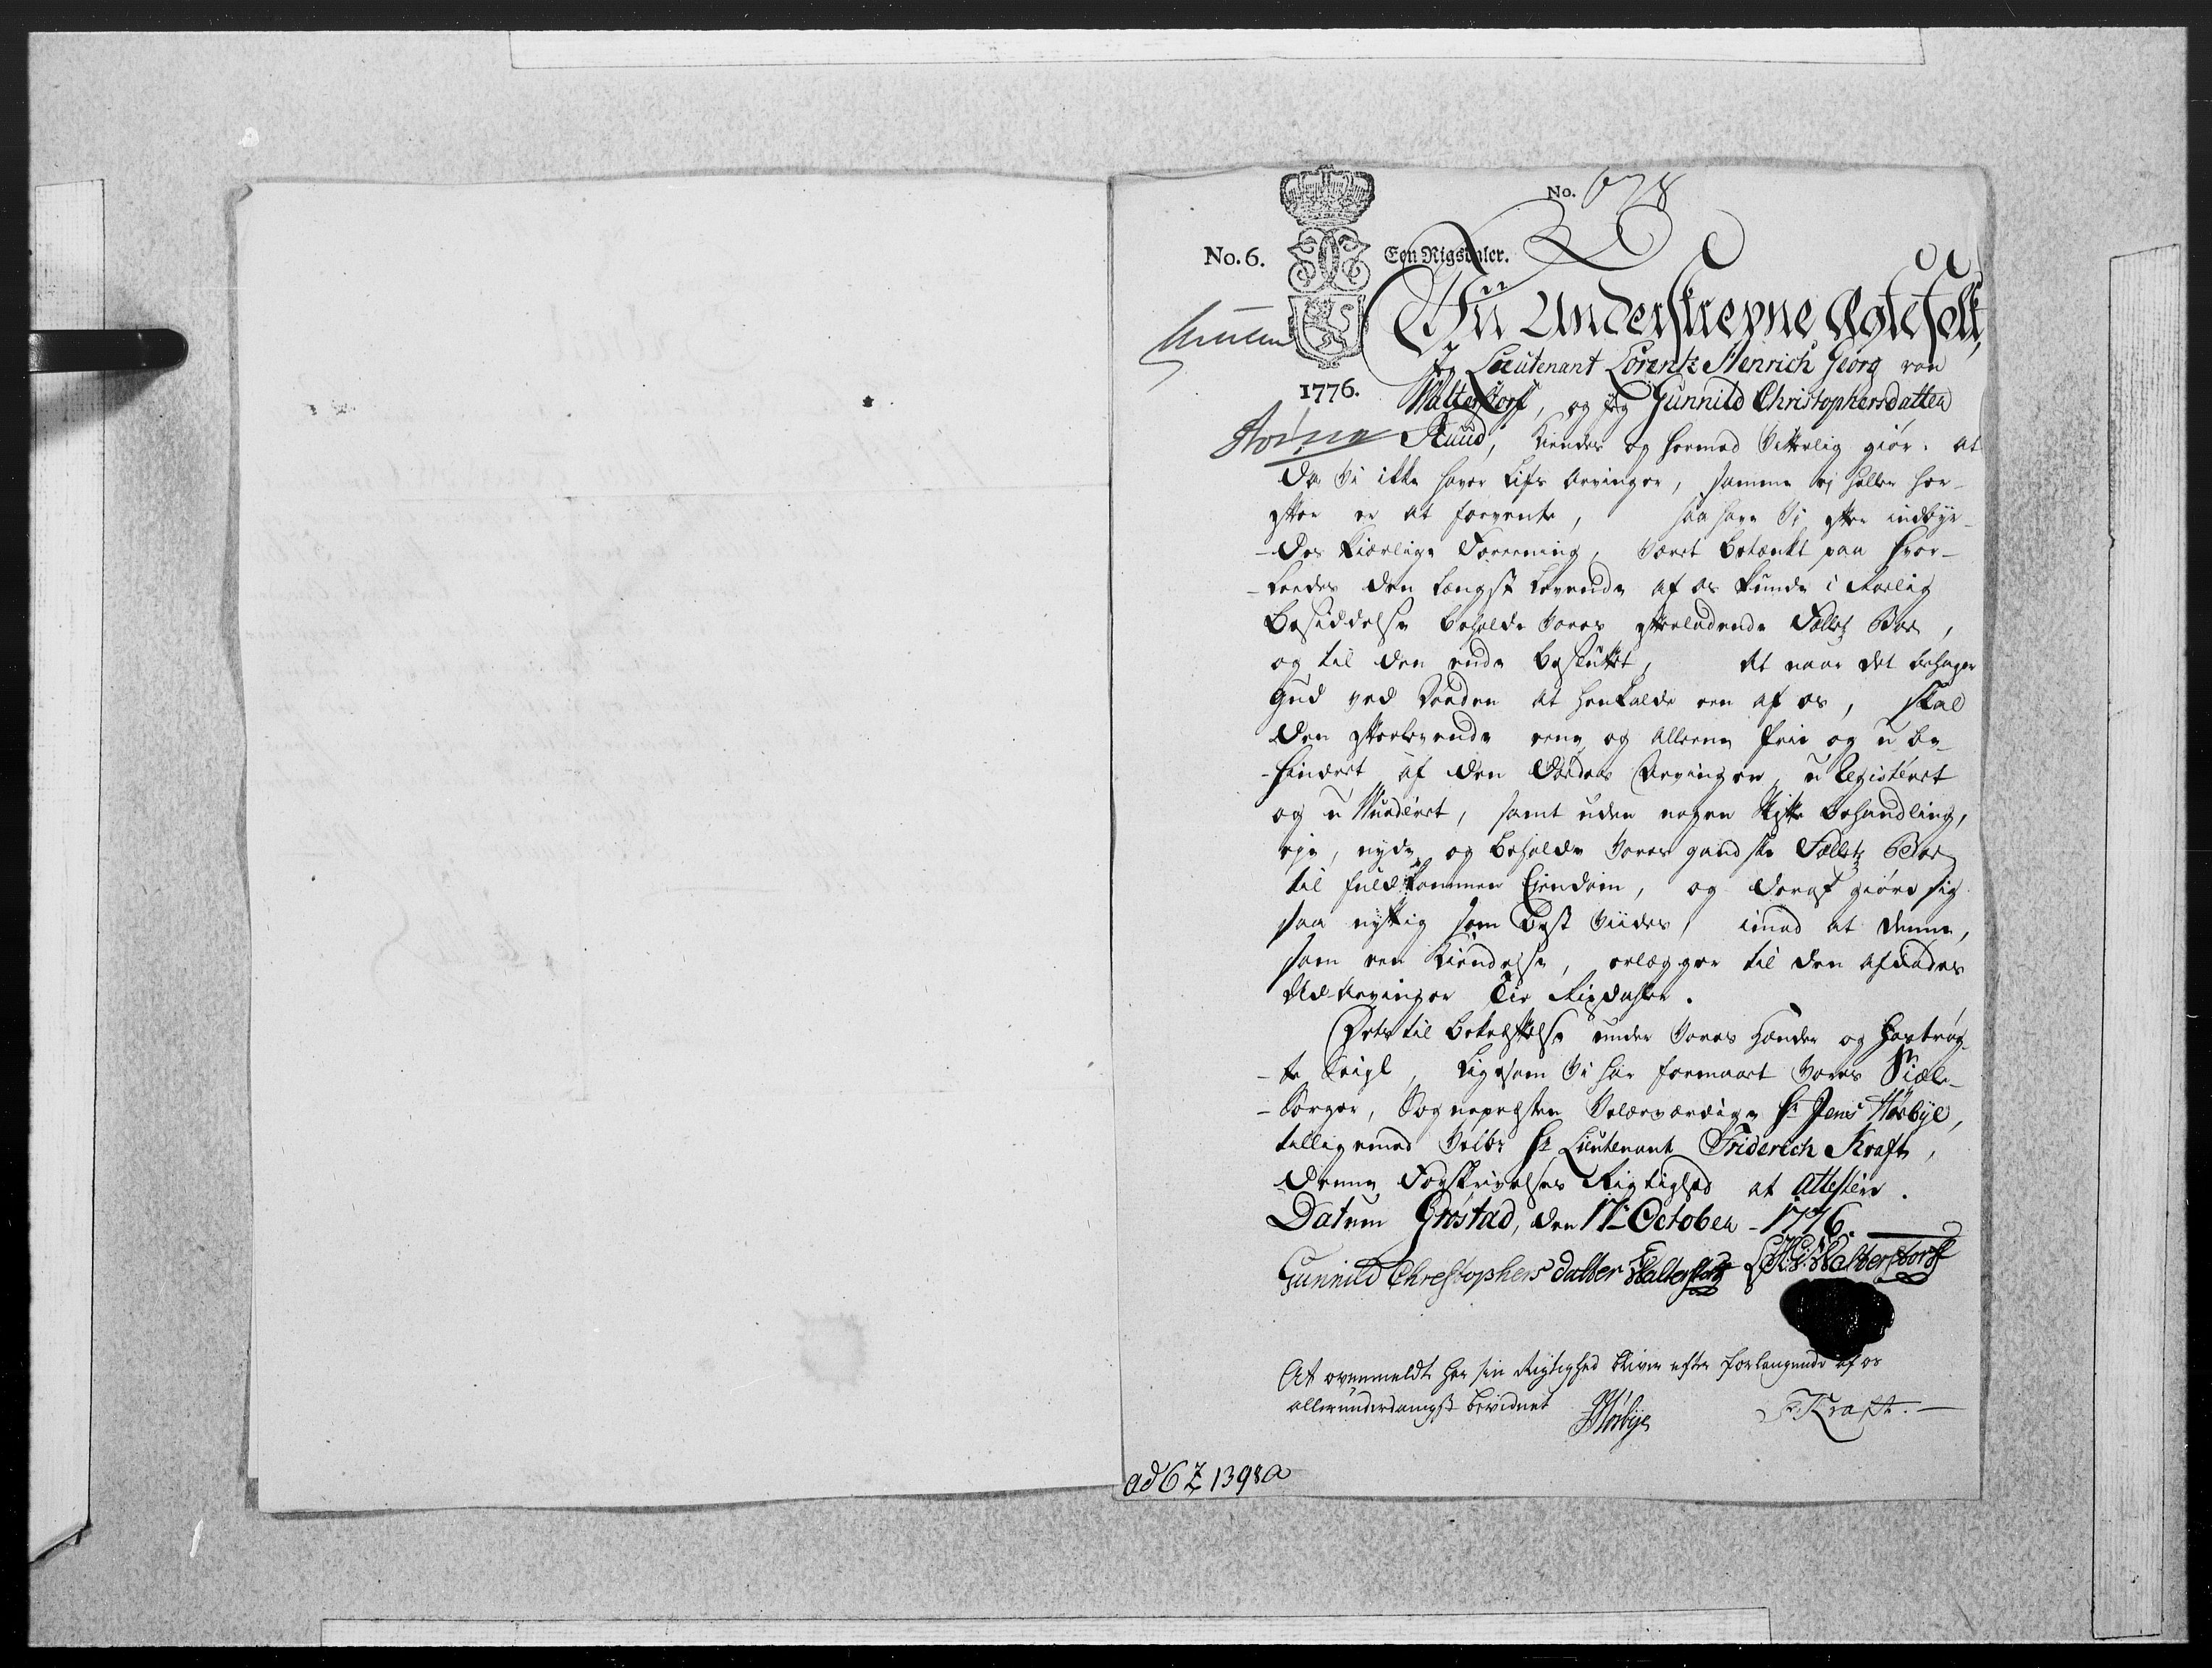 No. 678
No. 6. Een Rigsdaler.
Wii Underskrevne Ægtefolk,
Jeg Lieutenant Lorentz Henrich Georg von
1776. Walterstorf, og jeg Gunnild Christophersdatter
Ruud, Kiendes og hermed Vitterlig giør: at
da Vi ikke haver Lifs Arvinger, samme ej heller her-
efter er at forvente, saa have Vi efter indbyr-
-des kierlige Foreening, været betænkt paa hvor-
-leedes den længst Levende af os kunde i Roelig
Besiddelse beholde Vores efterladende Fælles Boe,
og til den ende besluttet, At naar det behager
Gud ved Døden at henkalde een af os, skal
den efterlevende eene og alleene frie og u be-
-hindret af den Dødes Arvinger, u Registeret
og u Vurderet, samt uden nogen Skifte behandling,
eje, nyde og beholde Vores gandske Fælles Boe
til fuldkommen Eiendom, og deraf giøre sig
saa nyttig som best Viides, imod at denne,
som een Kiendelse, erlægger til den afdødes
Ud Arvinger Tie Rixdaler.
Dets til bekræftelse under Vores Hænder og hostrøg-
-te Seigl, Ligesom Vi har formaaet Vores Siæle-
-Sørger, Sognepræsten Velærværdige Hr Jens Hørbye,
tilligemed Velb: Hr Lieutenant Friderich Kraft,
denne Forskrivelses Rigtighed at attestere.
Datum Grøstad, den 17 October - 1776.
Gunnild Christophers datter Walterstorff L.H.G.v.Walterstorff
At ovenmeldte har sin Rigtighed bliver efter forlangende af os
allerunderdanigst bevidnet
JHørbye Fr. Kraft.
ad 6 Z 1398 a